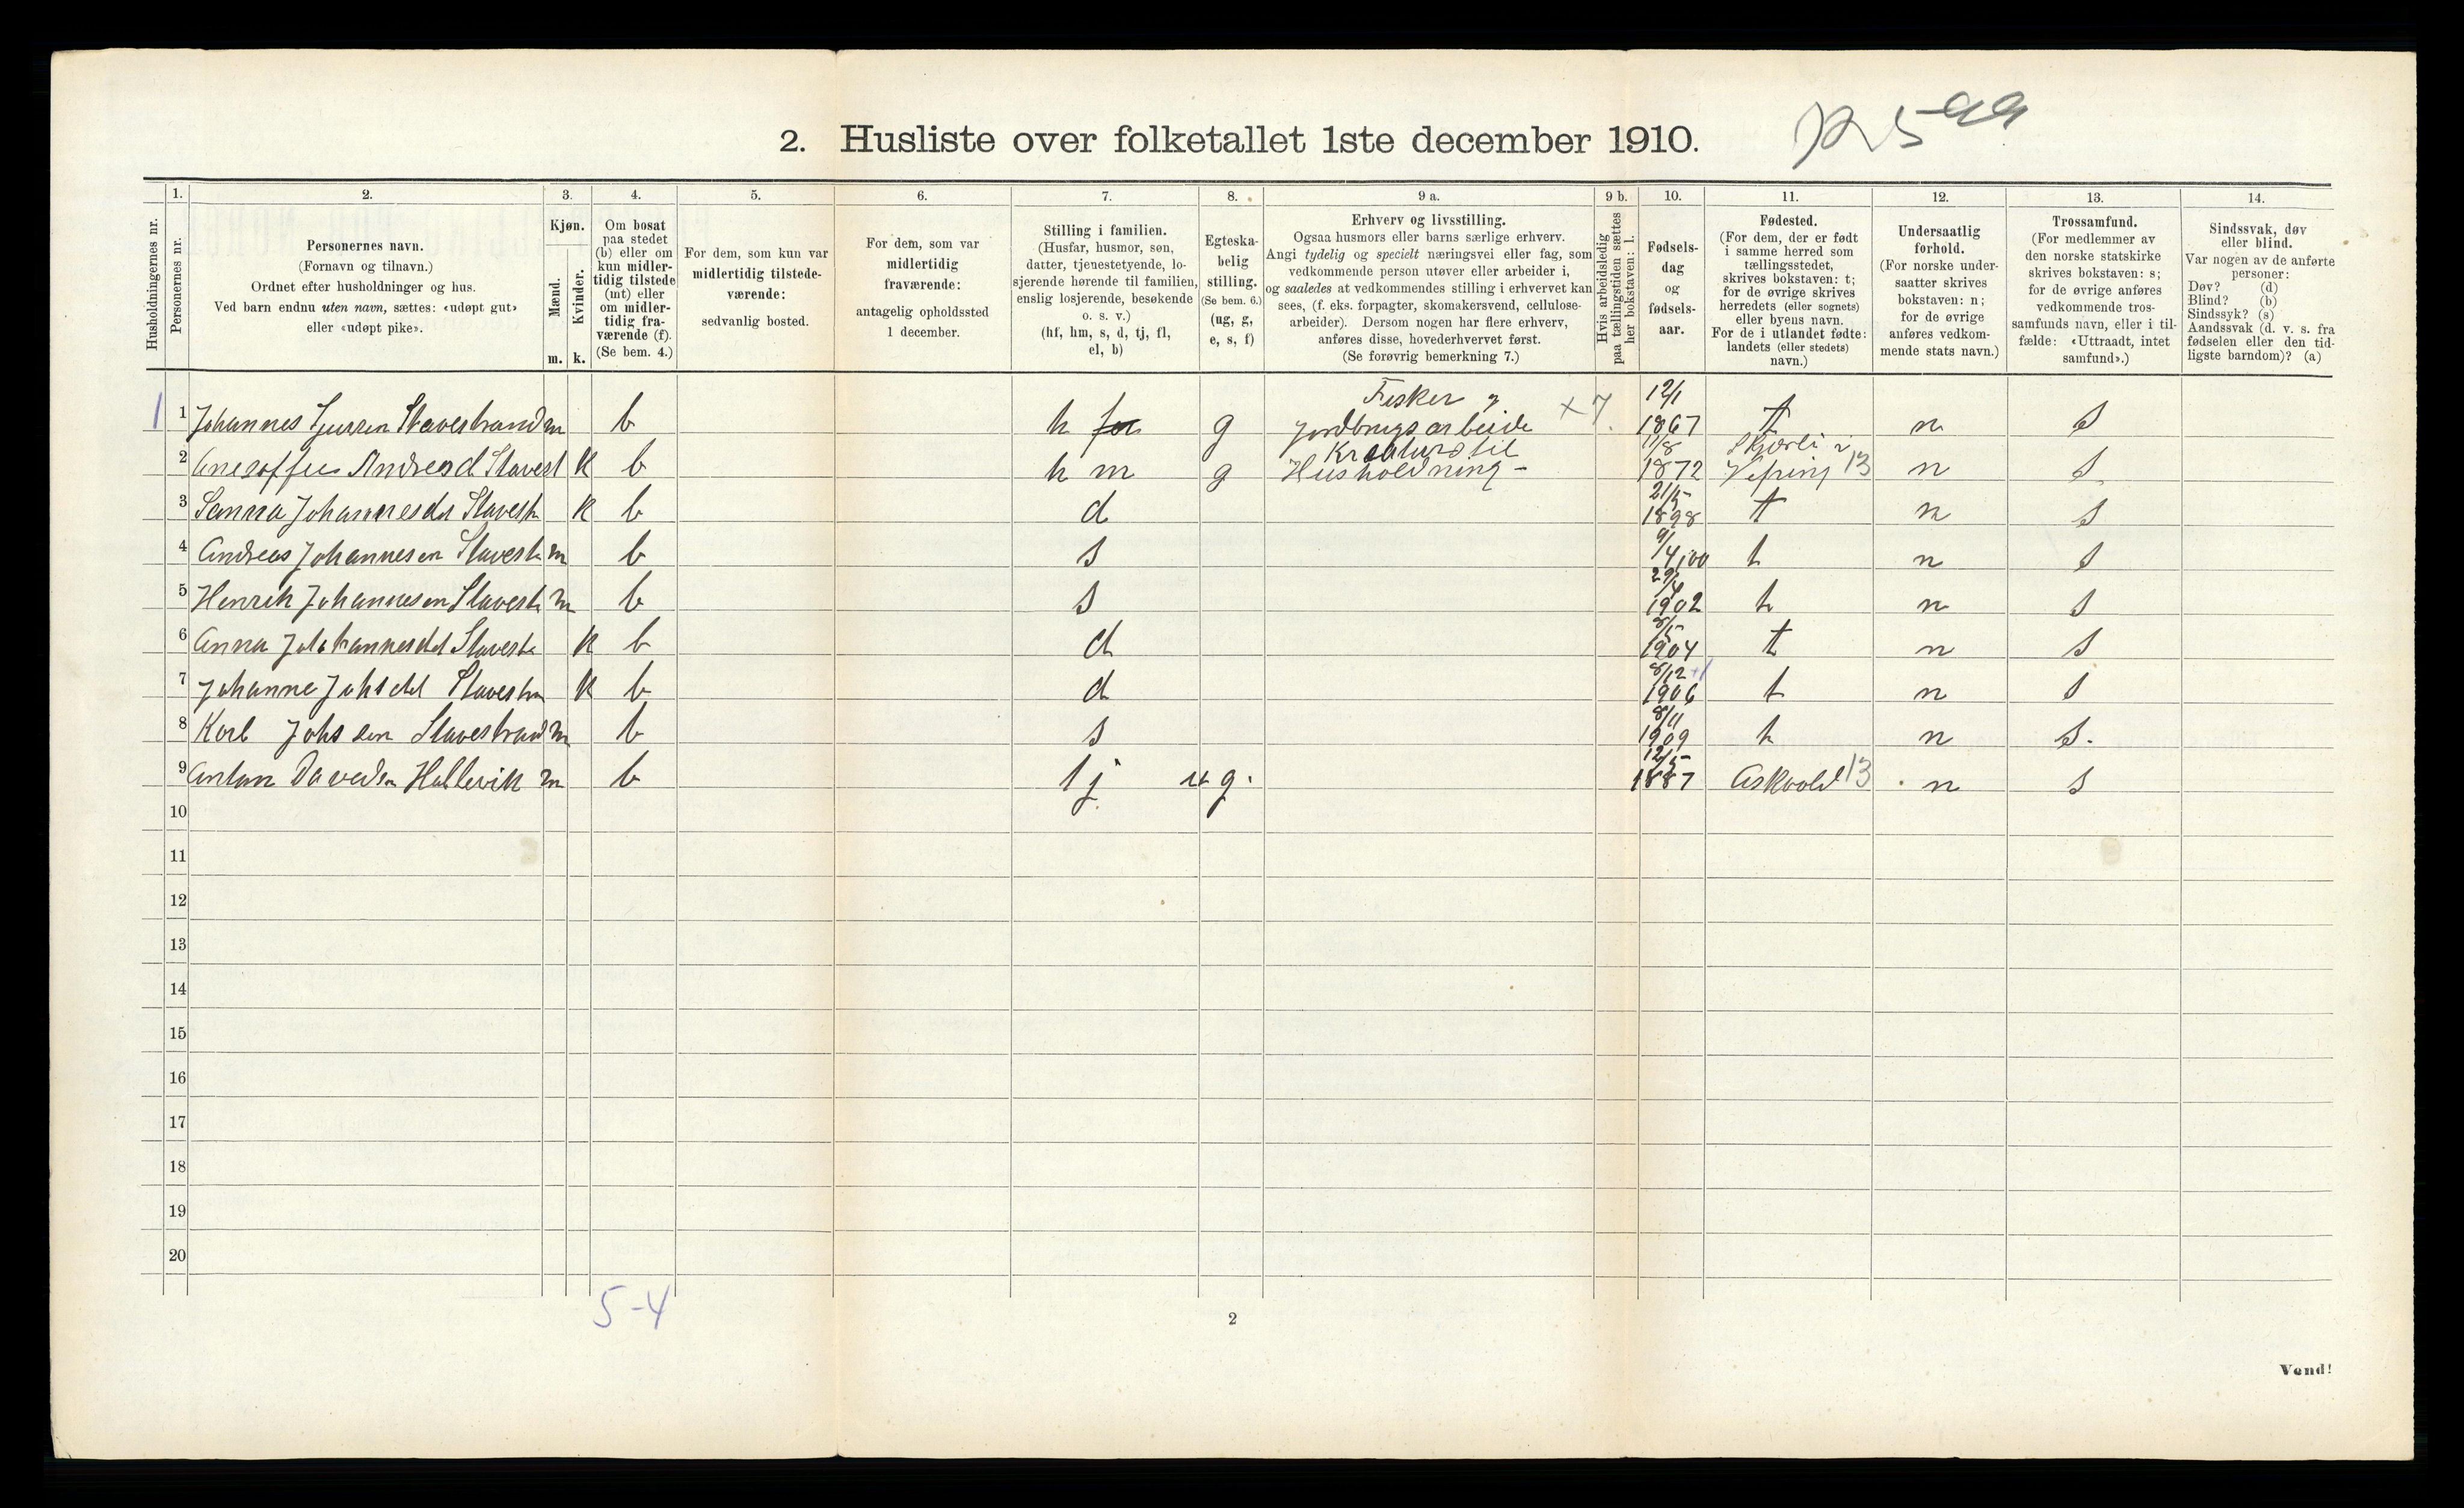 2. Husliste over folketallet 1ste december 1910.
Husholdningernes nr.
1.
Personernes nr.
2.
Personernes navn.
(Fornavn og tilnavn.)
Ordnet efter husholdninger og hus.
Ved barn endnu uten navn, sættes: «udøpt gut»
eller «udøpt pike».
3.
Kjøn.
Mænd.
Kvinder.
m. k.
4.
Om bosat
paa stedet
(b) eller om
kun midler-
tidig tilstede
(mt) eller
om midler-
tidig fra-
værende (f).
(Se bem. 4.)
5.
For dem, som kun var
midlertidig tilstede-
værende:
sedvanlig bosted.
6.
For dem, som var
midlertidig
fraværende:
antagelig opholdssted
1 december.
7.
Stilling i familien.
(Husfar, husmor, søn,
datter, tjenestetyende, lo-
sjerende hørende til familien,
enslig losjerende, besøkende
o. s. v.)
(hf, hm, s, d, tj, fl,
el, b)
8.
Egteska-
belig
stilling.
(Se bem. 6.)
(ug, g,
e, s, f)
9 a.
Erhverv og livsstilling.
Ogsaa husmors eller barns særlige erhverv.
Angi tydelig og specielt næringsvei eller fag, som
vedkommende person utøver eller arbeider i,
og saaledes at vedkommendes stilling i erhvervet kan
sees, (f. eks. forpagter, skomakersvend, cellulose-
arbeider). Dersom nogen har flere erhverv,
anføres disse, hovederhvervet først.
(Se forøvrig bemerkning 7.)
9 b.
Hvis arbeidsledig
paa tællingstiden sættes
her bokstaven: l.
10.
Fødsels-
dag
og
fødsels-
aar.
11.
Fødested.
(For dem, der er født
i samme herred som
tællingsstedet,
skrives bokstaven: t;
for de øvrige skrives
herredets (eller sognets)
eller byens navn.
For de i utlandet fødte:
landets (eller stedets)
navn.)
12.
Undersaatlig
forhold.
(For norske under-
saatter skrives
bokstaven: n;
for de øvrige
anføres vedkom-
mende stats navn.)
13.
Trossamfund.
(For medlemmer av
den norske statskirke
skrives bokstaven: s;
for de øvrige anføres
vedkommende tros-
samfunds navn, eller i til-
fælde: «Uttraadt, intet
samfund».)
14.
Sindssvak, døv
eller blind.
Var nogen av de anførte
personer:
Døv? (d)
Blind? (b)
Sindssyk? (s)
Aandssvak (d. v. s. fra
fødselen eller den tid-
ligste barndom)? (a)
Fisker 12/1
1 1 Johannes Stavestrand m b h g jordbrugsarbeide x 7 1867 t n s
Kreaturstil 11/8
2 Andreasd Stavest k b h m g Husholdning - 1872 13 n s
21/5
3 Sanna Johannesdr Stavestr k b d 1898 t n s
9/
4 Andreas Johannesen Stavestr m b s 4,00 t n s
29/4
5 Henrik Johannesen Stavestr m b s 1902 t n s
8/5
6 Anna Johannesdtr Stavestr k b d 1904 t n s
8/12 +1
7 Johanne Johsdtr Stavestran k b d 1906 t n s
8/11
8 Karl Johssen Stavestrand m b s 1909 t n s.
12/5
9 Anton Davedsn Hallevik m b tj ug. 1887 Askvold 13 n s
10
11
12
13
14
15
16
17
18
19
20
5-4
2
Vend!